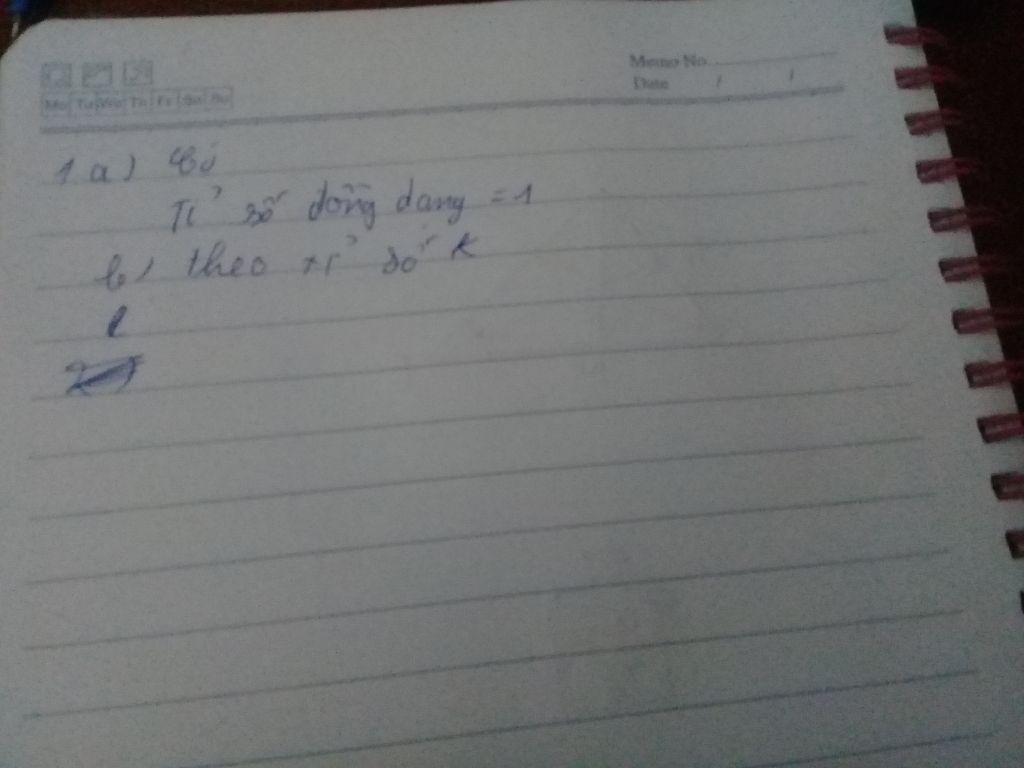 Memo No
Date / /
Mo Tu We Th Fr Sa Su
1 a) Có
Tỉ số đồng dạng = 1
b) theo tỉ số k